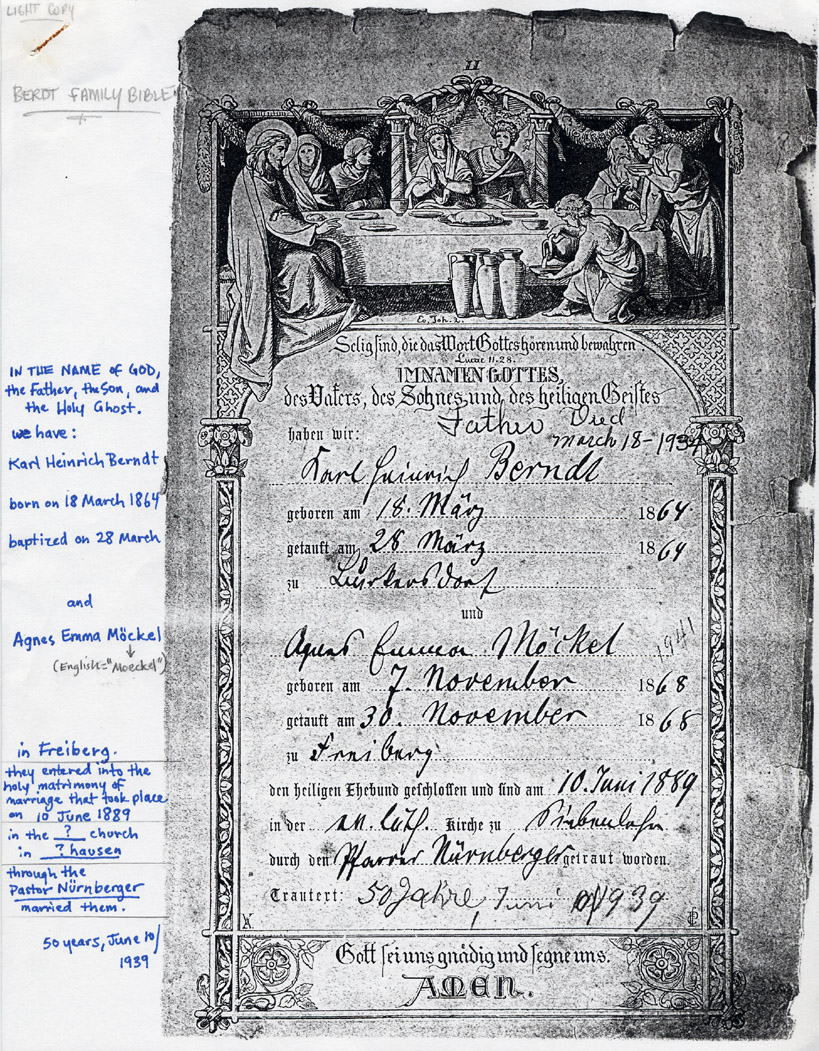 LIGHT COPY
BERDT FAMILY BIBLE
II
Ev. Joh. 2.
Selig sind, die das Wort Gottes hören und bewahren.
Lucae 11. 28.
IM NAMEN GOTTES,
des Vaters, des Sohnes und des heiligen Geistes
Father Died
March 18-1934
haben wir:
Karl Heinrich Berndt
geboren am 18. März 1864
getauft am 28 März 1864
zu
und
Agnes Emma Möckel 1941
geboren am 7. November 1868
getauft am 30. November 1868
zu Freiberg
den heiligen Ehebund geschlossen und sind am 10. Juni 1889
in der ev. luth. Kirche zu Siebenlehn
durch den Pfarrer Nürnberger getraut worden.
Trautext: 50 Jahre, Juni 1939
Gott sei uns gnädig und segne uns.
AMEN.
IN THE NAME of GOD,
the Father, the Son, and
the Holy Ghost.
we have:
Karl Heinrich Berndt
born on 18 March 1864
baptized on 28 March
and
Agnes Emma Möckel
(English="Moeckel")
in Freiberg.
they entered into the
holy matrimony of
marriage that took place
on 10 June 1889
in the ? church
in ? hausen
through the
Pastor Nürnberger
married them.
50 years, June 10/
1939